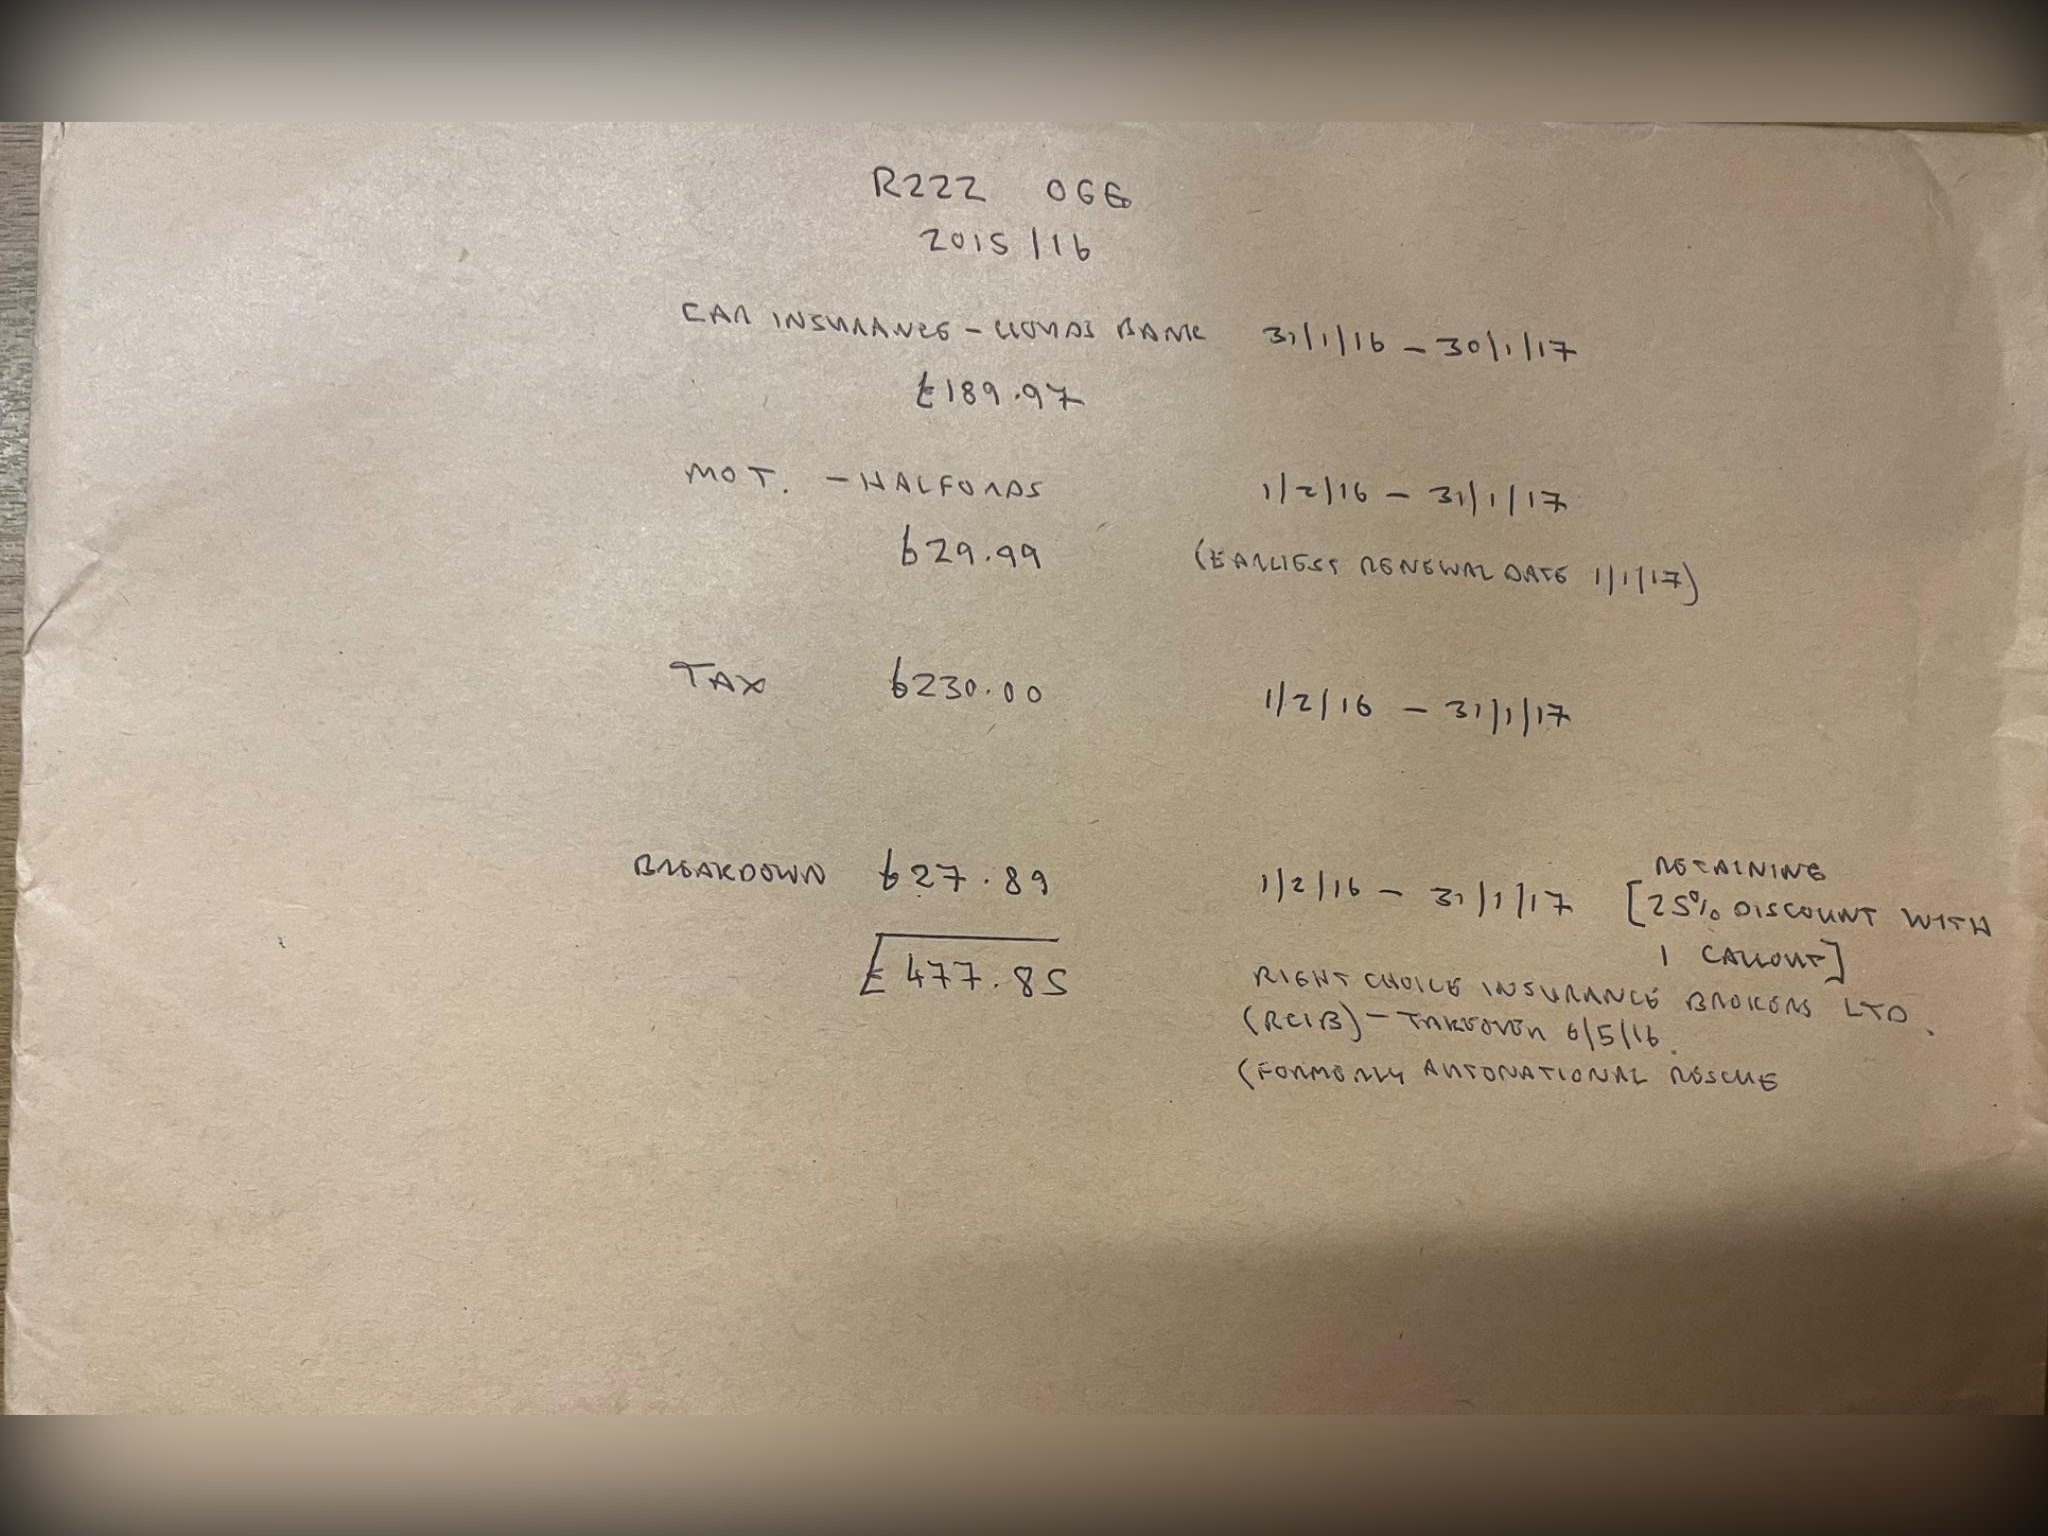 R222 OGG
2015/16
CAR INSURANCE - LLOYDS BANK 31/1/16 - 30/1/17
£189.97
MOT. - HALFORDS 1/2/16 - 31/1/17
£29.99 (EARLIEST RENEWAL DATE 1/1/17)
TAX £230.00 1/2/16 - 31/1/17
BREAKDOWN £27.89 1/2/16 - 31/1/17 RETAINING
[25% DISCOUNT WITH
1 CALLOUT]
£477.85
RIGHT CHOICE INSURANCE BROKERS LTD.
(RCIB) - TAKEOVER 6/5/16.
(FORMERLY AUTONATIONAL RESCUE